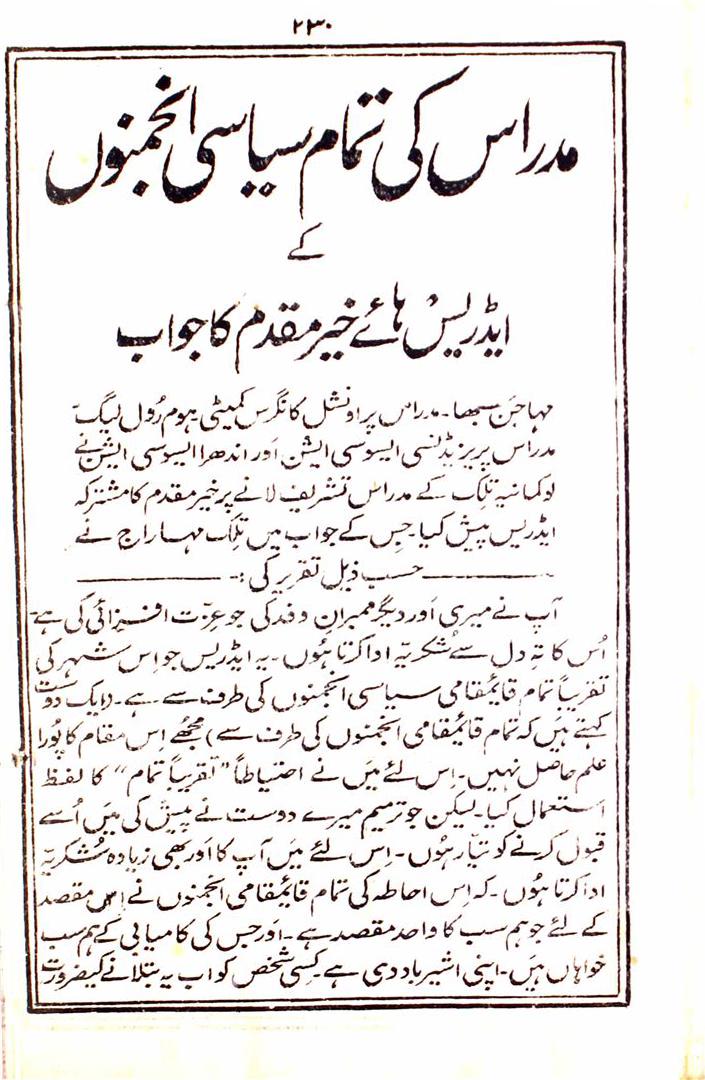 ۲۳۰
مدراس کی تمام سیاسی انجمنوں
کے
ایڈریس ہائے خیر مقدم کا جواب
مہاجن سبھا۔ مدراس پراونشل کانگرس کمیٹی۔ ہوم رُول لیگ۔
مدراس پریزیڈنسی ایسوسی ایشن اور اندھرا ایسوسی ایشن نے
لوکمانیہ تلک کے مدراس تشریف لانے پر خیر مقدم کا مشترکہ
ایڈریس پیش کیا۔ جس کے جواب میں تلک مہاراج نے
حسب ذیل تقریر کی :۔
آپ نے میری اور دیگر ممبران وفد کی جو عزت افزائی کی ہے۔
اُس کا تہِ دل سے شکریہ ادا کرتا ہُوں۔ یہ ایڈریس جو اِس شہر کی
تقریباً تمام قائمقامی سیاسی انجمنوں کی طرف سے ہے۔ (ایک دوست
کہتے ہیں کہ تمام قائمقامی انجمنوں کی طرف سے) مجھے اِس مقام کا پُورا
علم حاصل نہیں۔ اِس لئے میں نے احتیاطاً ”تقریباً تمام“ کا لفظ
استعمال کیا۔ لیکن جو ترمیم میرے دوست نے پیش کی ہیں اُسے
قبول کرنے کو تیار ہُوں۔ اِس لئے میں آپ کا اَور بھی زیادہ شُکریہ
ادا کرتا ہُوں۔ کہ اِس احاطہ کی تمام قائمقامی انجمنوں نے اِس مقصد
کے لئے جو ہم سب کا واحد مقصد ہے۔ اَور جس کی کامیابی کے ہم سب
خواہاں ہیں۔ اپنی اشیر باد دی ہے۔ کِسی شخص کو اب یہ بتلانے کیضرورت